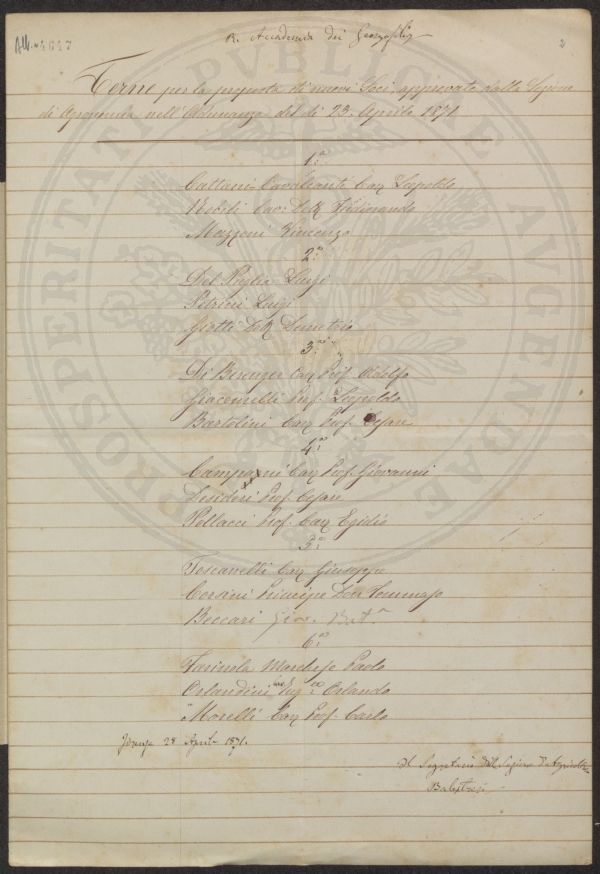 All. n 4647
R. Accademia dei Georgofili
2
Terne per la proposta di nuovi Soci approvate dalla Sezione
di Agronomia nell'Adunanza del dì 23. Aprile 1871
1.a
Cattani Cavalcanti Cav. Leopoldo
Nobili Cav. Dott. Ferdinando
Mazzoni Vincenzo
2.a
Del Puglia Luigi
Petrini Luigi
Giotti Dott. Demetrio
3.a
Di Berenger Cav. Prof. Adolfo
Giacomelli Prof. Leopoldo
Bartolini Cav. Prof. Cesare
4.a
Campani Cav. Prof. Giovanni
Desideri Prof. Cesare
Pollacci Prof. Cav. Egidio
5.a
Toscanelli Cav. Giuseppe
Corsini Principe Don Tommaso
Beccari Giov. Bat.a
6.a
Farinola Marchese Paolo
Orlandini Cav. Ing.re Orlando
Morelli Cav. Prof. Carlo
Firenze 28 Aprile 1871.
Il Segretario della Sezione d'Agricoltura
PROSPERITATI PUBLICAE AUGENDAE